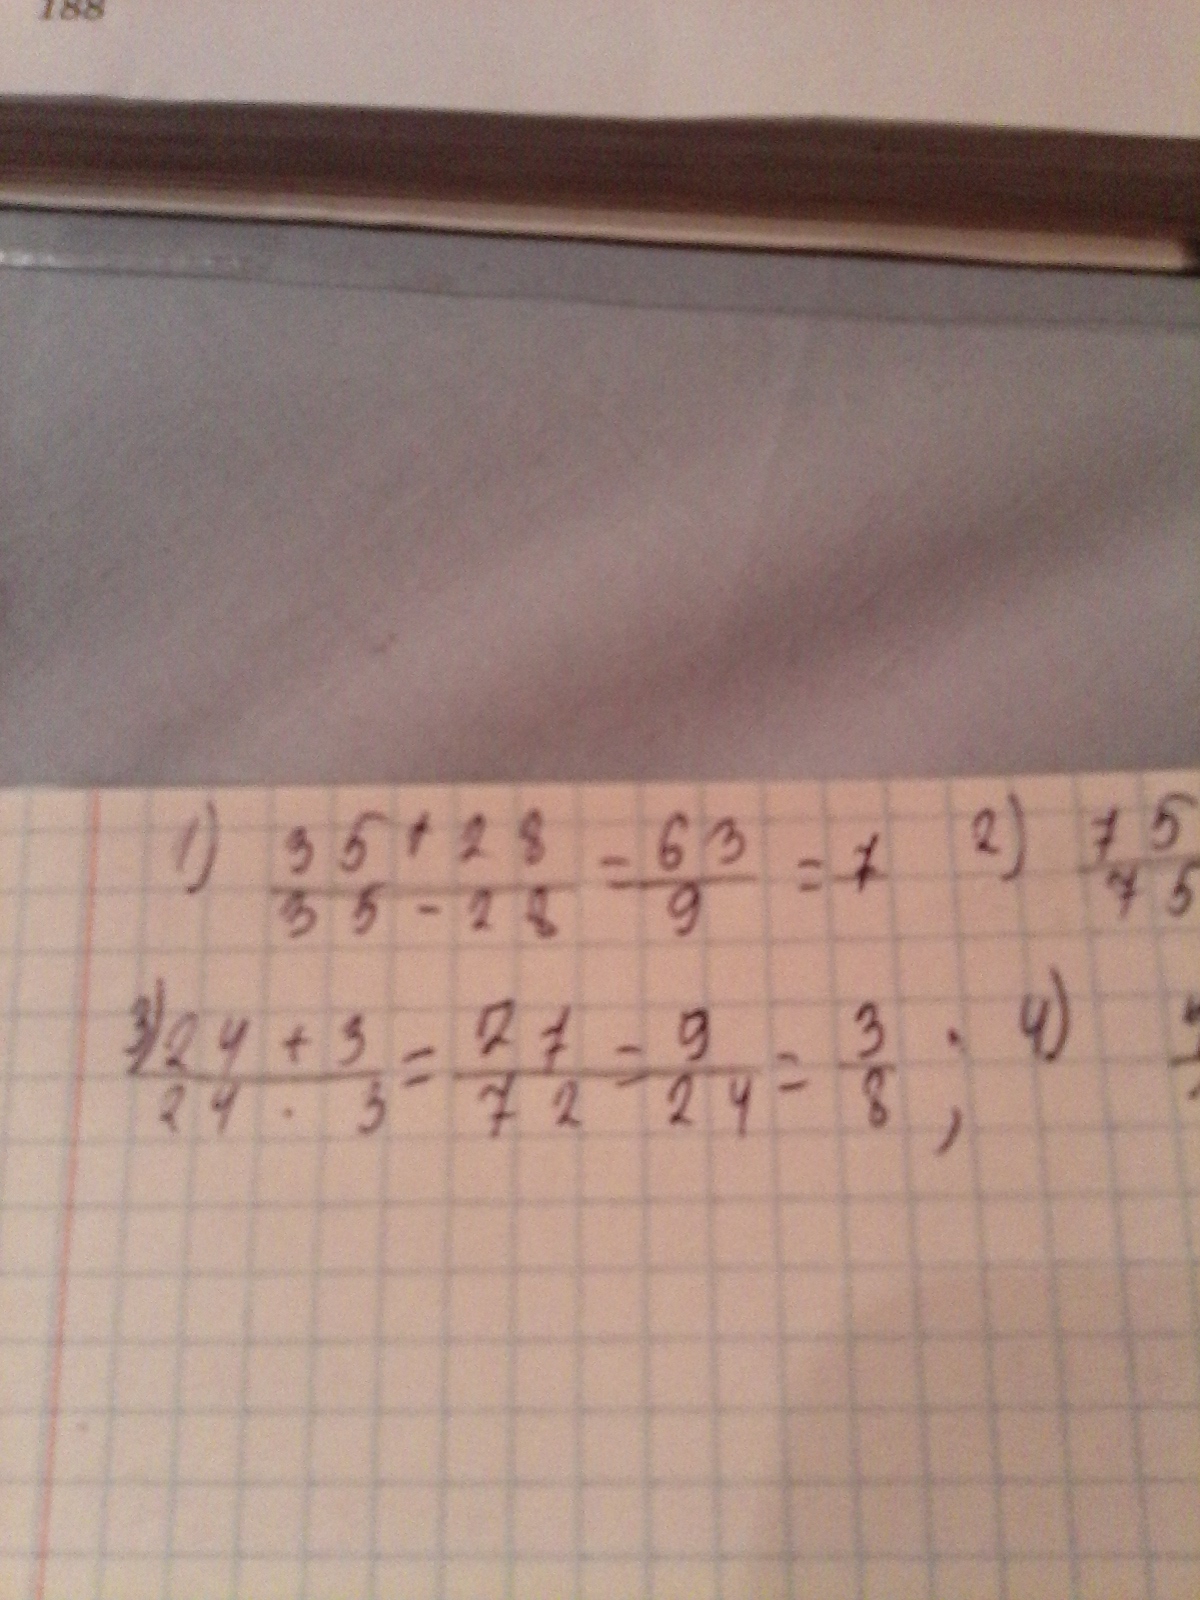 188
1) 35+28/35-28 = 63/9 = 7 2) 75/75
3) 24+3/24·3 = 27/72 = 9/24 = 3/8 ; 4)